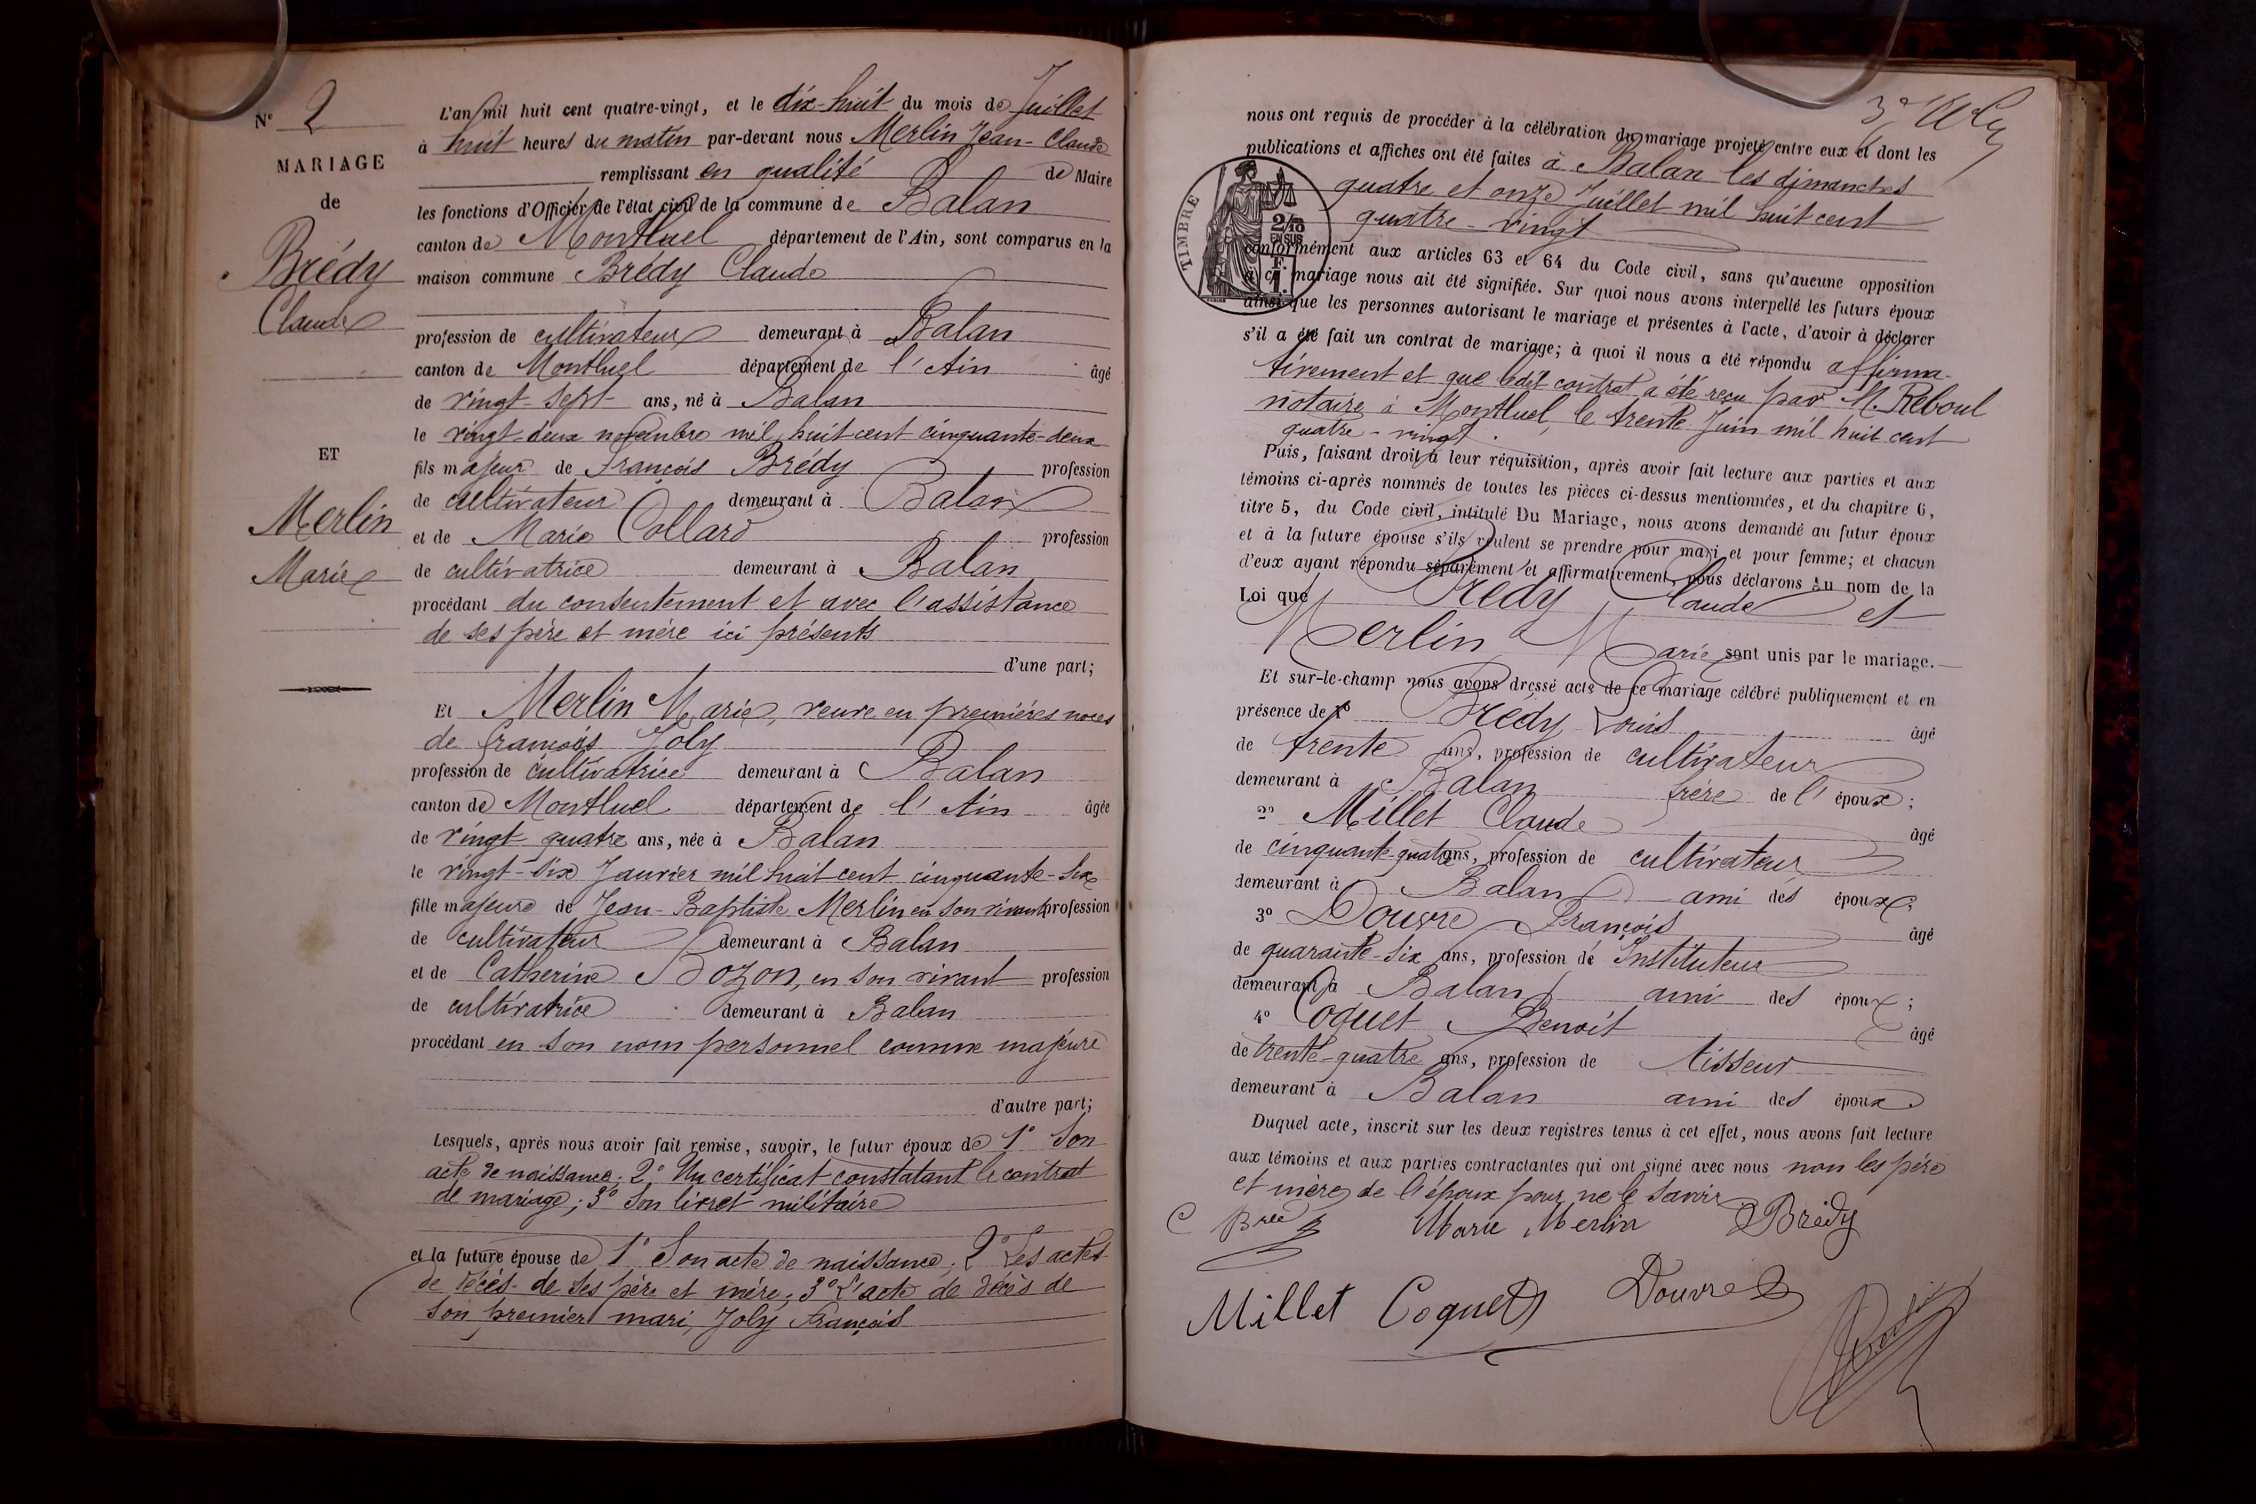 Nº 2
MARIAGE
de
Brédy
Claude
ET
Merlin
Marie
L'an mil huit cent quatre-vingt, et le dix-huit du mois de Juillet
à huit heures du matin par-devant nous Merlin Jean-Claude
remplissant en qualité de Maire
les fonctions d'Officier de l'état civil de la commune de Balan
canton de Montluel département de l'Ain, sont comparus en la
maison commune Brédy Claude
profession de cultivateur demeurant à Balan
canton de Montluel département de l'Ain âgé
de vingt-sept ans, né à Balan
le vingt-deux novembre mil huit cent cinquante-deux
fils majeur de François Brédy profession
de cultivateur demeurant à Balan
et de Marie Collard profession
de cultivatrice demeurant à Balan
procédant du consentement et avec l'assistance
de ses père et mère ici présents
d'une part;
Et Merlin Marie, veuve en premières noces
de François Joly
profession de cultivatrice demeurant à Balan
canton de Montluel département de l'Ain âgée
de vingt quatre ans, née à Balan
le vingt-six Janvier mil huit cent cinquante-six
fille majeure de Jean-Baptiste Merlin en son vivant profession
de cultivateur demeurant à Balan
et de Catherine Bozon, en son vivant profession
de cultivatrice demeurant à Balan
procédant en son nom personnel comme majeure
d'autre part;
Lesquels, après nous avoir fait remise, savoir, le futur époux de 1º Son
acte de naissance; 2º Un certificat constatant le contrat
de mariage; 3º Son livret militaire
et la future épouse de 1º Son acte de naissance; 2º Les actes
de décès de ses père et mère; 3º L'acte de décès de
son premier mari, Joly François
nous ont requis de procéder à la célébration du mariage projeté entre eux et dont les
publications et affiches ont été faites à Balan les dimanches
quatre et onze Juillet mil huit cent
quatre-vingt
TIMBRE
2/10
EN SUS
F.
1.
conformément aux articles 63 et 64 du Code civil, sans qu'aucune opposition
à ce mariage nous ait été signifiée. Sur quoi nous avons interpellé les futurs époux
ainsi que les personnes autorisant le mariage et présentes à l'acte, d'avoir à déclarer
s'il a été fait un contrat de mariage; à quoi il nous a été répondu affirma-
tivement et que ledit contrat a été reçu par M. Reboul
notaire à Montluel, le trente Juin mil huit cent
quatre-vingt.
Puis, faisant droit à leur réquisition, après avoir fait lecture aux parties et aux
témoins ci-après nommés de toutes les pièces ci-dessus mentionnées, et du chapitre 6,
titre 5, du Code civil, intitulé Du Mariage, nous avons demandé au futur époux
et à la future épouse s'ils veulent se prendre pour mari et pour femme; et chacun
d'eux ayant répondu séparément et affirmativement, nous déclarons au nom de la
Loi que Brédy Claude et
Merlin Marie sont unis par le mariage.
Et sur-le-champ nous avons dressé acte de ce mariage célébré publiquement et en
présence de 1º Brédy Louis âgé
de trente ans, profession de cultivateur
demeurant à Balan frère de l'époux;
2º Millet Claude âgé
de cinquante-quatre ans, profession de cultivateur
demeurant à Balan ami des époux;
3º Douvre François âgé
de quarante-six ans, profession de Instituteur
demeurant à Balan ami des époux;
4º Coquet Benoit âgé
de trente-quatre ans, profession de tisseur
demeurant à Balan ami des époux
Duquel acte, inscrit sur les deux registres tenus à cet effet, nous avons fait lecture
aux témoins et aux parties contractantes qui ont signé avec nous non les père
et mère de l'époux pour ne le savoir
Marie Merlin Brédy
Millet Coquet Douvre